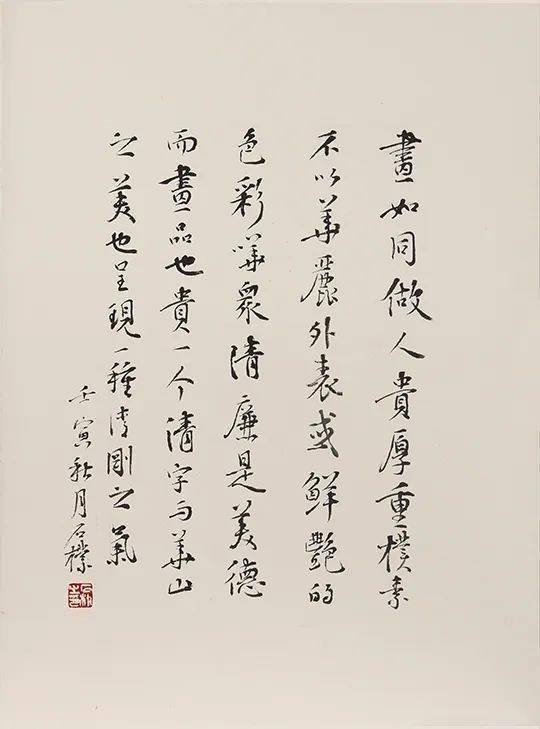 畫如同做人貴厚重樸素
不以華麗外表或鮮艷的
色彩嘩眾清廉是美德
而畫品也貴一个清字与華山
之美也呈現一種清剛之氣
壬寅秋月石樸